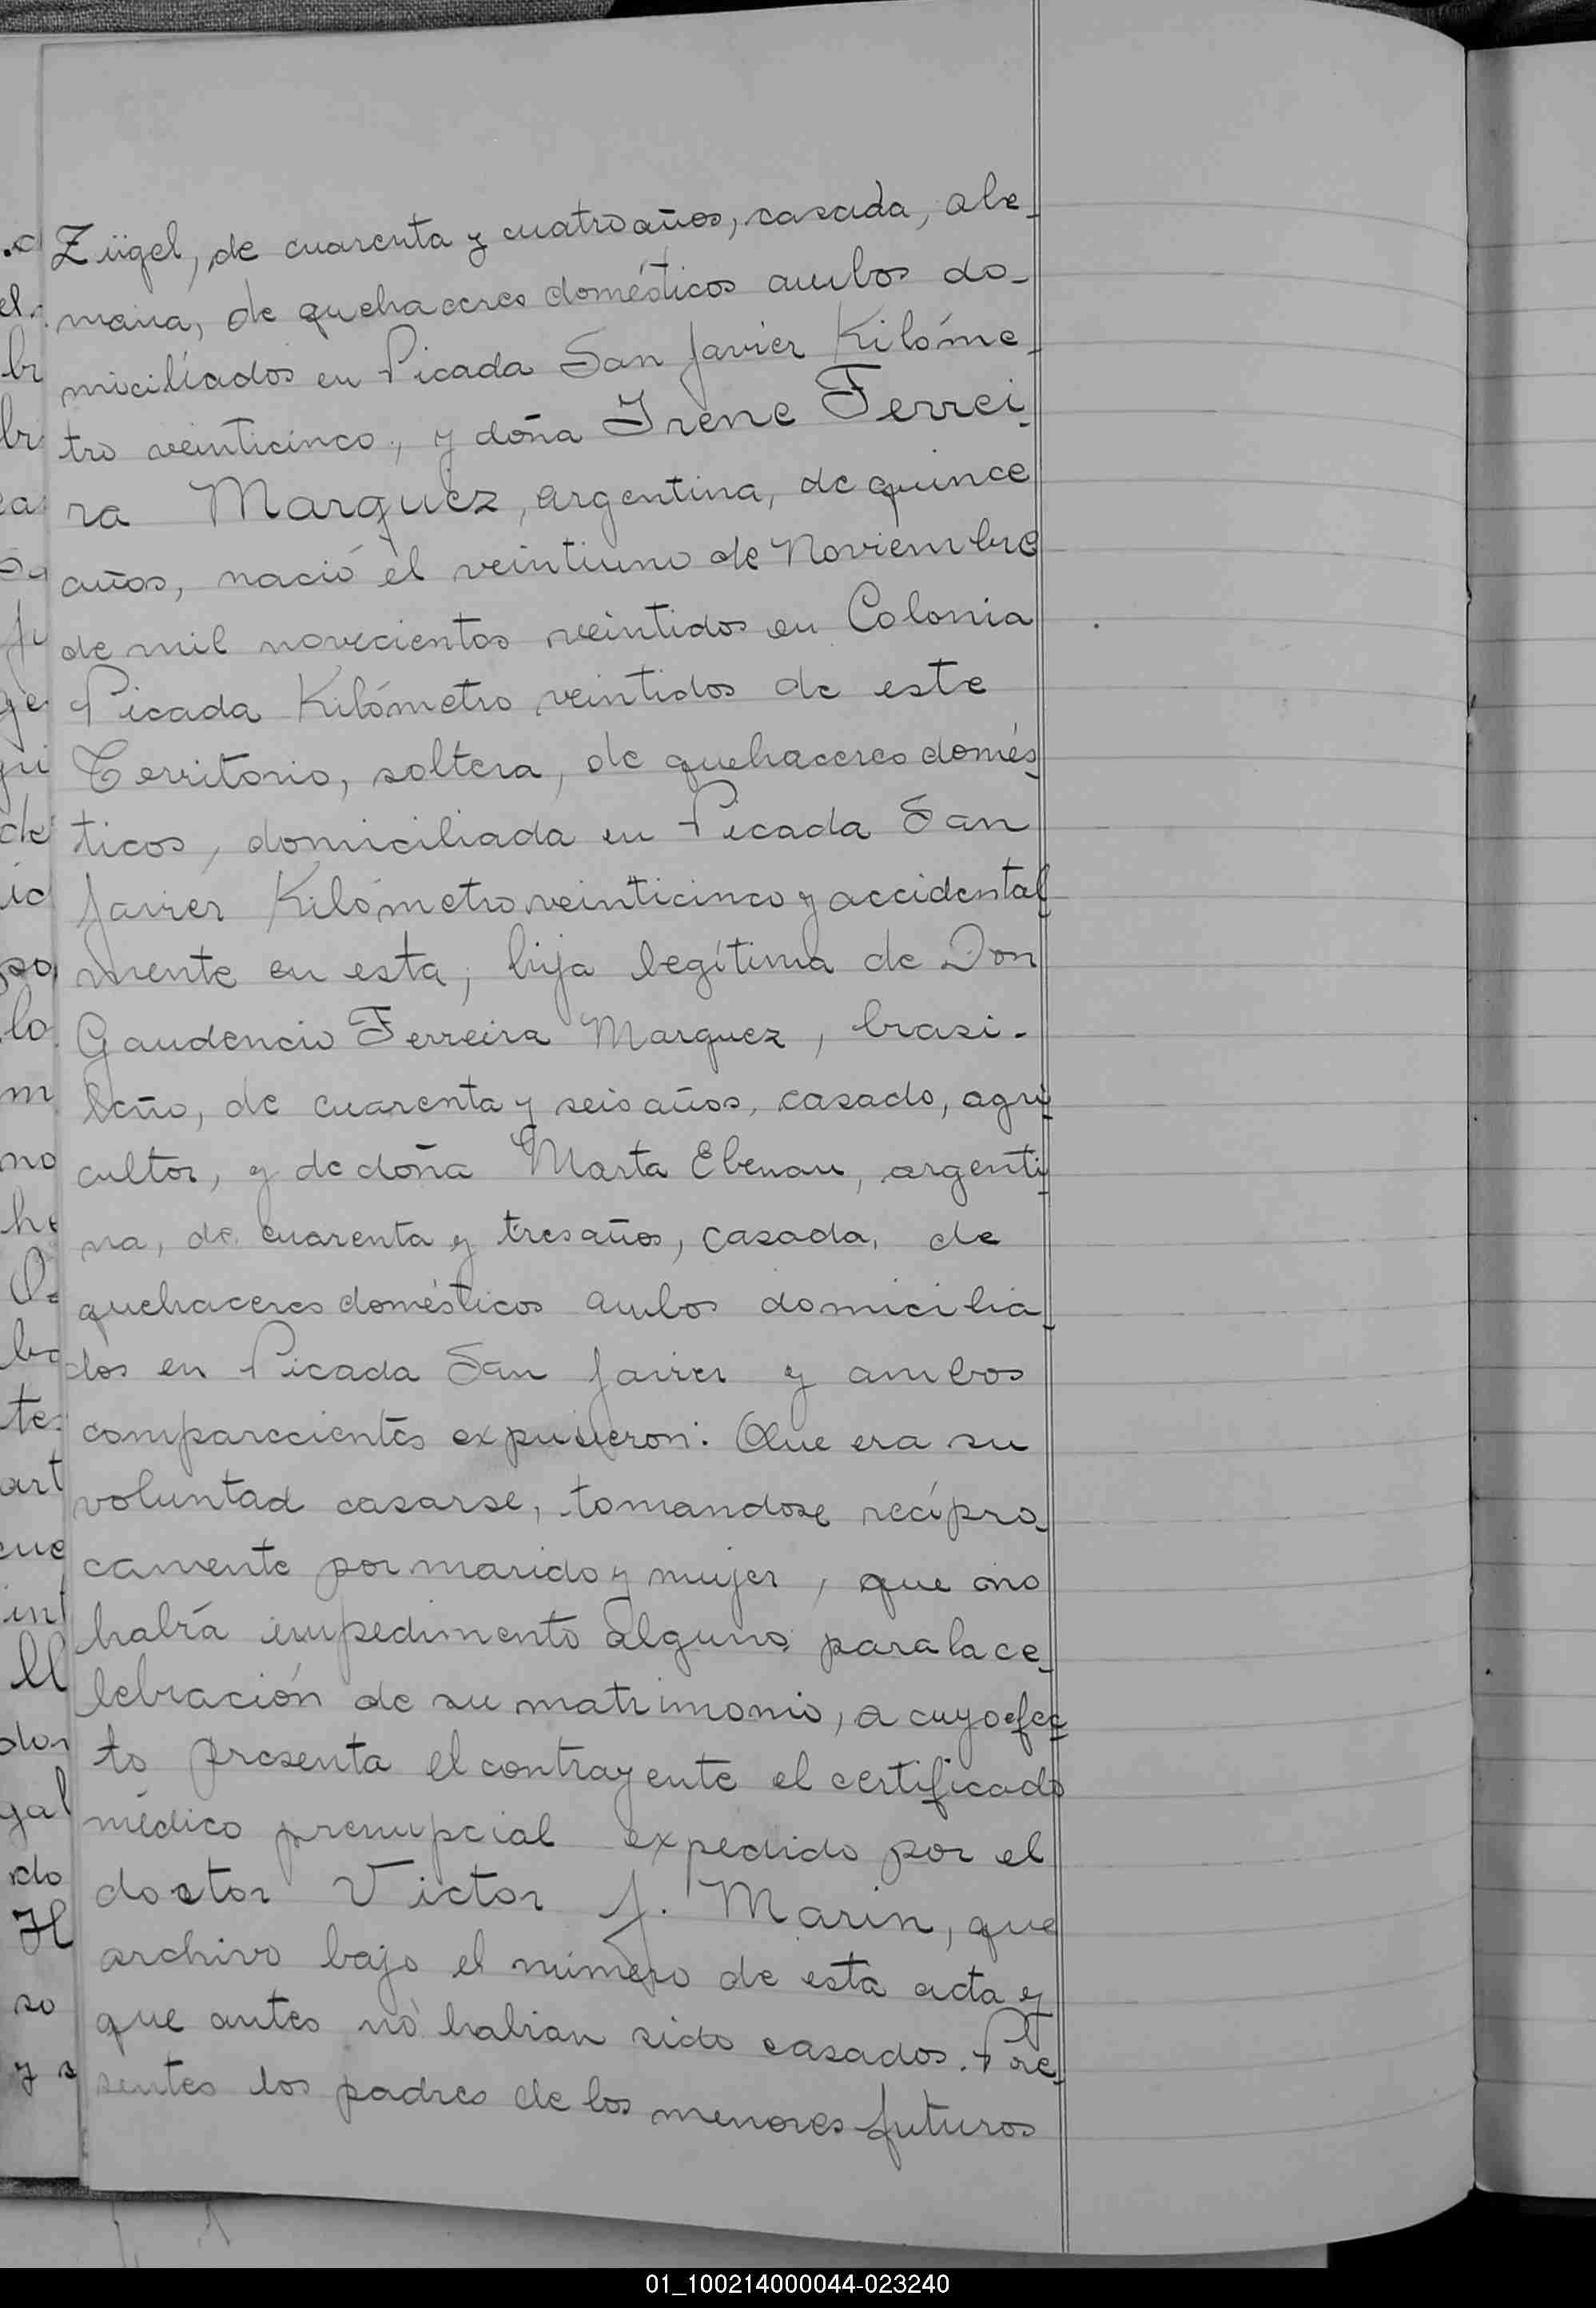 Zügel, de cuarenta y cuatro años, casada, ale-
mana, de quehaceres domésticos ambos do-
miciliados en Picada San Javier Kilóme-
tro veinticinco, y doña Irene Ferrei-
ra Marquez, argentina, de quince
años, nació el veintiuno de Noviembre
de mil novecientos veintidos en Colonia
Picada Kilómetro veintidos de este
Territorio, soltera, de quehaceres domés-
ticos, domiciliada en Picada San
Javier Kilómetro veinticinco y accidental-
mente en esta, hija legítima de Don
Gaudencio Ferreira Marquez, brasi-
leño, de cuarenta y seis años, casado, agri-
cultor, y de doña Marta Ebenau, argenti-
na, de cuarenta y tres años, casada, de
quehaceres domésticos ambos domicilia-
dos en Picada San Javier y ambos
comparecientes expusieron: Que era su
voluntad casarse, tomandose recípro-
camente por marido y mujer, que no
había impedimento alguno para la ce-
lebración de su matrimonio, a cuyo efec-
to presenta el contrayente el certificado
médico prenupcial expedido por el
doctor Victor J. Marin, que
archivo bajo el número de esta acta y
que antes no habian sido casados. Pre-
sentes los padres de los menores futuros
01_100214000044-023240